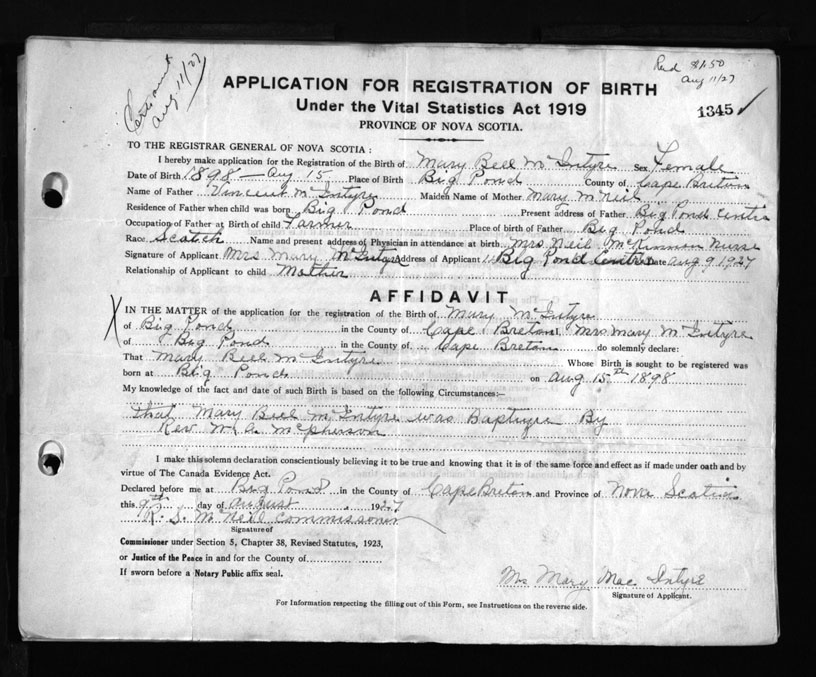 Aug 11/27
Recd $1.50
Aug 11/27
APPLICATION FOR REGISTRATION OF BIRTH
Under the Vital Statistics Act 1919
1345
PROVINCE OF NOVA SCOTIA.
TO THE REGISTRAR GENERAL OF NOVA SCOTIA:
I hereby make application for the Registration of the Birth of Mary Bell McIntyre Sex Female
Date of Birth 1898 - Aug 15 Place of Birth Big Pond County of Cape Breton
Name of Father Vincent McIntyre Maiden Name of Mother Mary McNeil
Residence of Father when child was born Big Pond Present address of Father Big Pond Centre
Occupation of Father at Birth of child Farmer Place of birth of Father Big Pond
Race Scotch Name and present address of Physician in attendance at birth Mrs Neil McKinnon Nurse
Signature of Applicant Mrs Mary McIntyre Address of Applicant Big Pond Centre Date Aug 9 1927
Relationship of Applicant to child Mother
AFFIDAVIT
X IN THE MATTER of the application for the registration of the Birth of Mary McIntyre
of Big Pond in the County of Cape Breton I Mrs Mary McIntyre
of Big Pond in the County of Cape Breton do solemnly declare:
That Mary Bell McIntyre Whose Birth is sought to be registered was
born at Big Pond on Aug 15th 1898
My knowledge of the fact and date of such Birth is based on the following Circumstances:—
That Mary Bell McIntyre was Baptized By
Rev. McPherson
I make this solemn declaration conscientiously believing it to be true and knowing that it is of the same force and effect as if made under oath and by
virtue of The Canada Evidence Act.
Declared before me at Big Pond in the County of Cape Breton and Province of Nova Scotia
this 9th day of August, 1927
McNeil Commissioner
Signature of
Commissioner under Section 5, Chapter 38, Revised Statutes, 1923,
or Justice of the Peace in and for the County of
If sworn before a Notary Public affix seal.
Mrs Mary MacIntyre
Signature of Applicant.
For Information respecting the filling out of this Form, see Instructions on the reverse side.